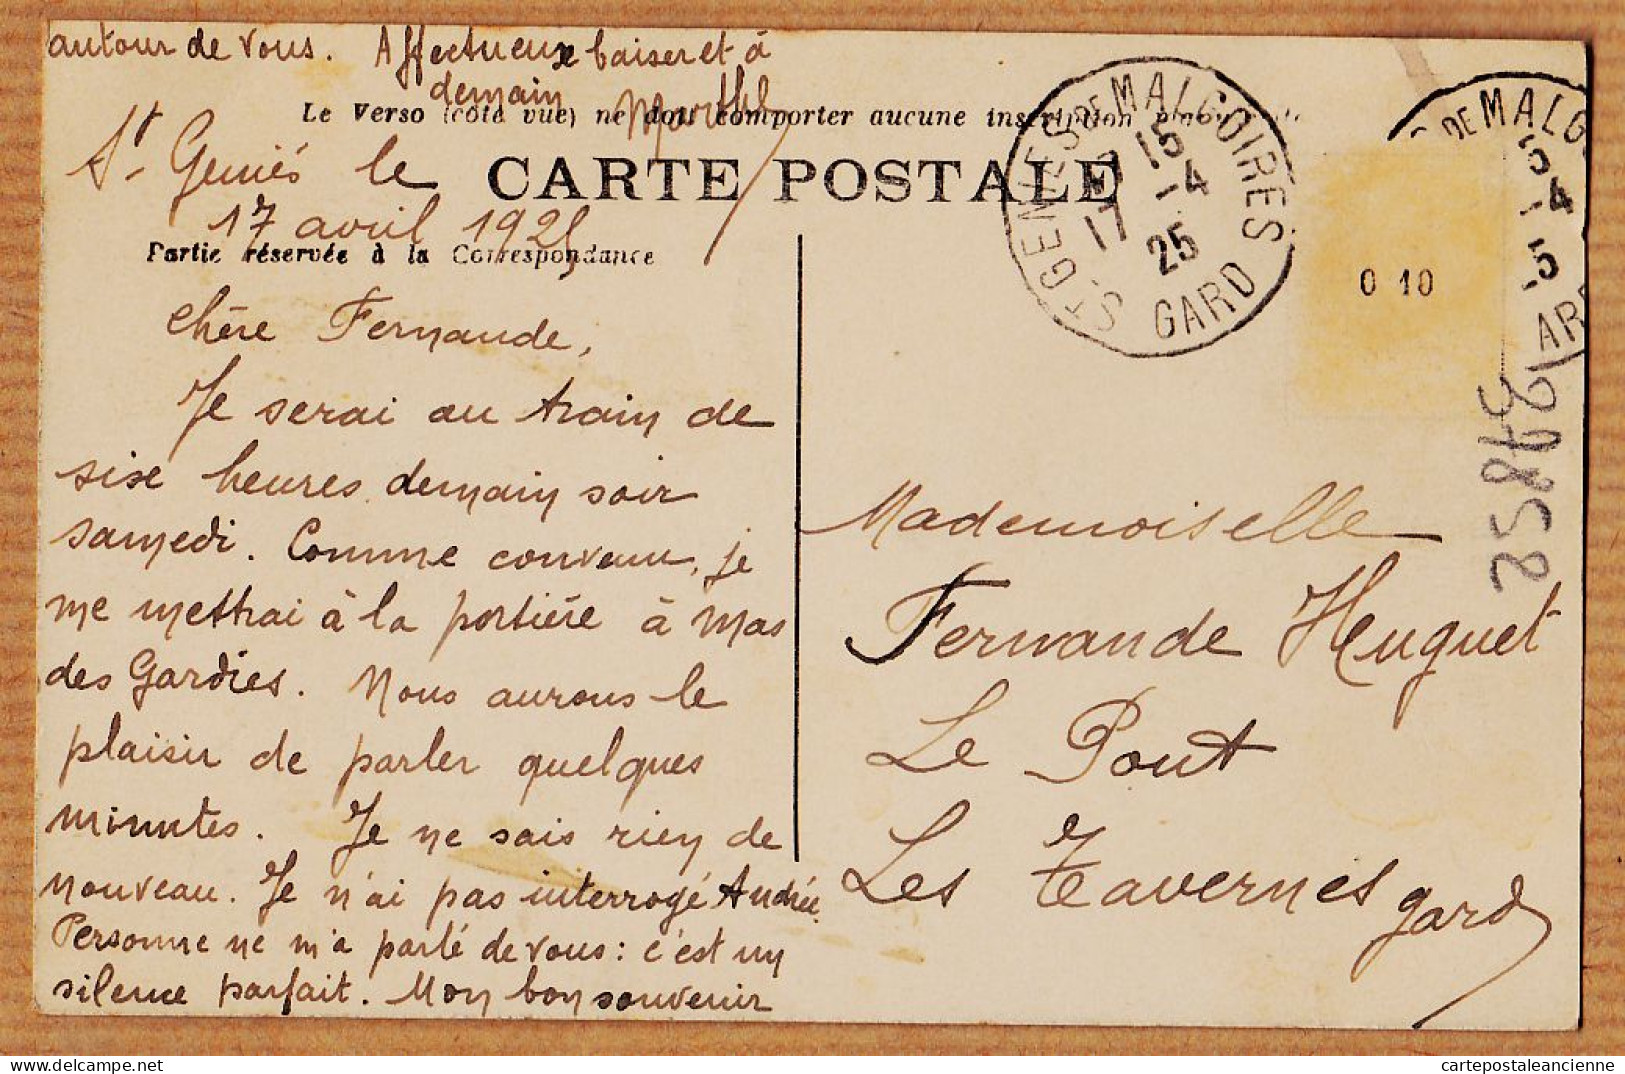 autour de vous. Affectueux baiser et à
demain Marthe
Le Verso (côté vue) ne doit comporter aucune inscription
CARTE POSTALE
St Geniés le
17 avril 1925
Partie réservée à la Correspondance
Chère Fernande,
Je serai au train de
sixe heures demain soir
samedi. Comme convenu, je
me mettrai à la portière à Mas
des Gardies. Nous aurons le
plaisir de parler quelques
minutes. Je ne sais rien de
nouveau. Je n'ai pas interrogé Andrée.
Personne ne m'a parlé de vous : c'est un
silence parfait. Mon bon souvenir
St GENIES DE MALGOIRES
17 15
17 -4
25
GARD
DE MALG
15
-4
5
AR
0 10
Mademoiselle
Fernande Huguet
Le Pont
Les Tavernes
Gard
delcampe.net
cartepostaleancienne